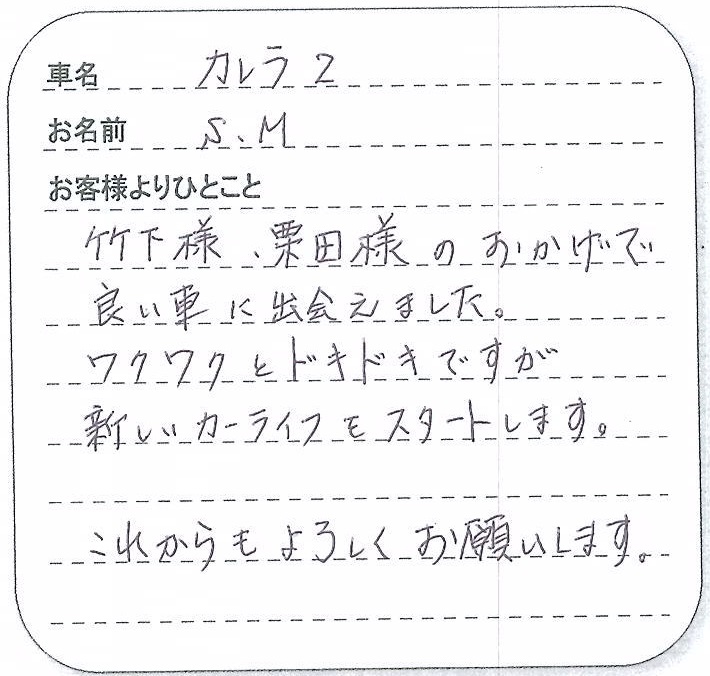 車名 カレラ2
お名前 S、M
お客様よりひとこと
竹下様、栗田様のおかげで
良い車に出会えました。
ワクワクとドキドキですが
新しいカーライフをスタートします。
これからもよろしくお願いします。